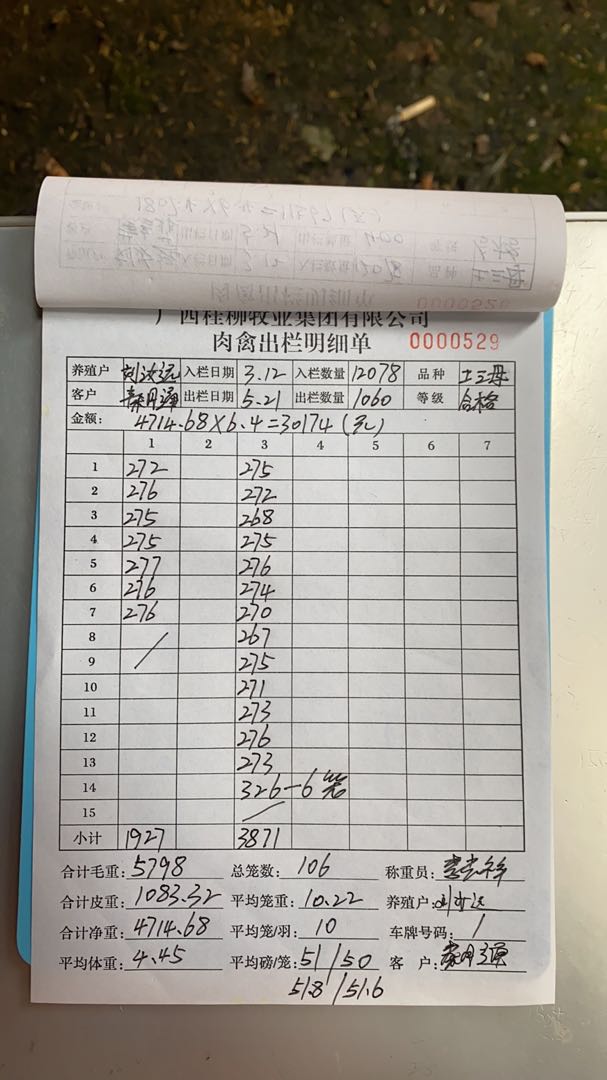 广西桂柳牧业集团有限公司
肉禽出栏明细单 0000529
养殖户 入栏日期 3.12 入栏数量 12078 品种
客户 出栏日期 5.21 出栏数量 1060 等级 合格
金额: 4714.68×6.4=30174(元)
1 2 3 4 5 6 7
1 272 275
2 276 272
3 275 268
4 275 275
5 277 276
6 276 274
7 276 270
8 267
9 275
10 271
11 273
12 276
13 273
14 326-6笼
15
小计 1927 3871
合计毛重: 5798 总笼数: 106 称重员:
合计皮重: 1083.32 平均笼重: 10.22 养殖户:
合计净重: 4714.68 平均笼/羽: 10 车牌号码: /
平均体重: 4.45 平均磅/笼: 51/50 客户:
51.8/51.6